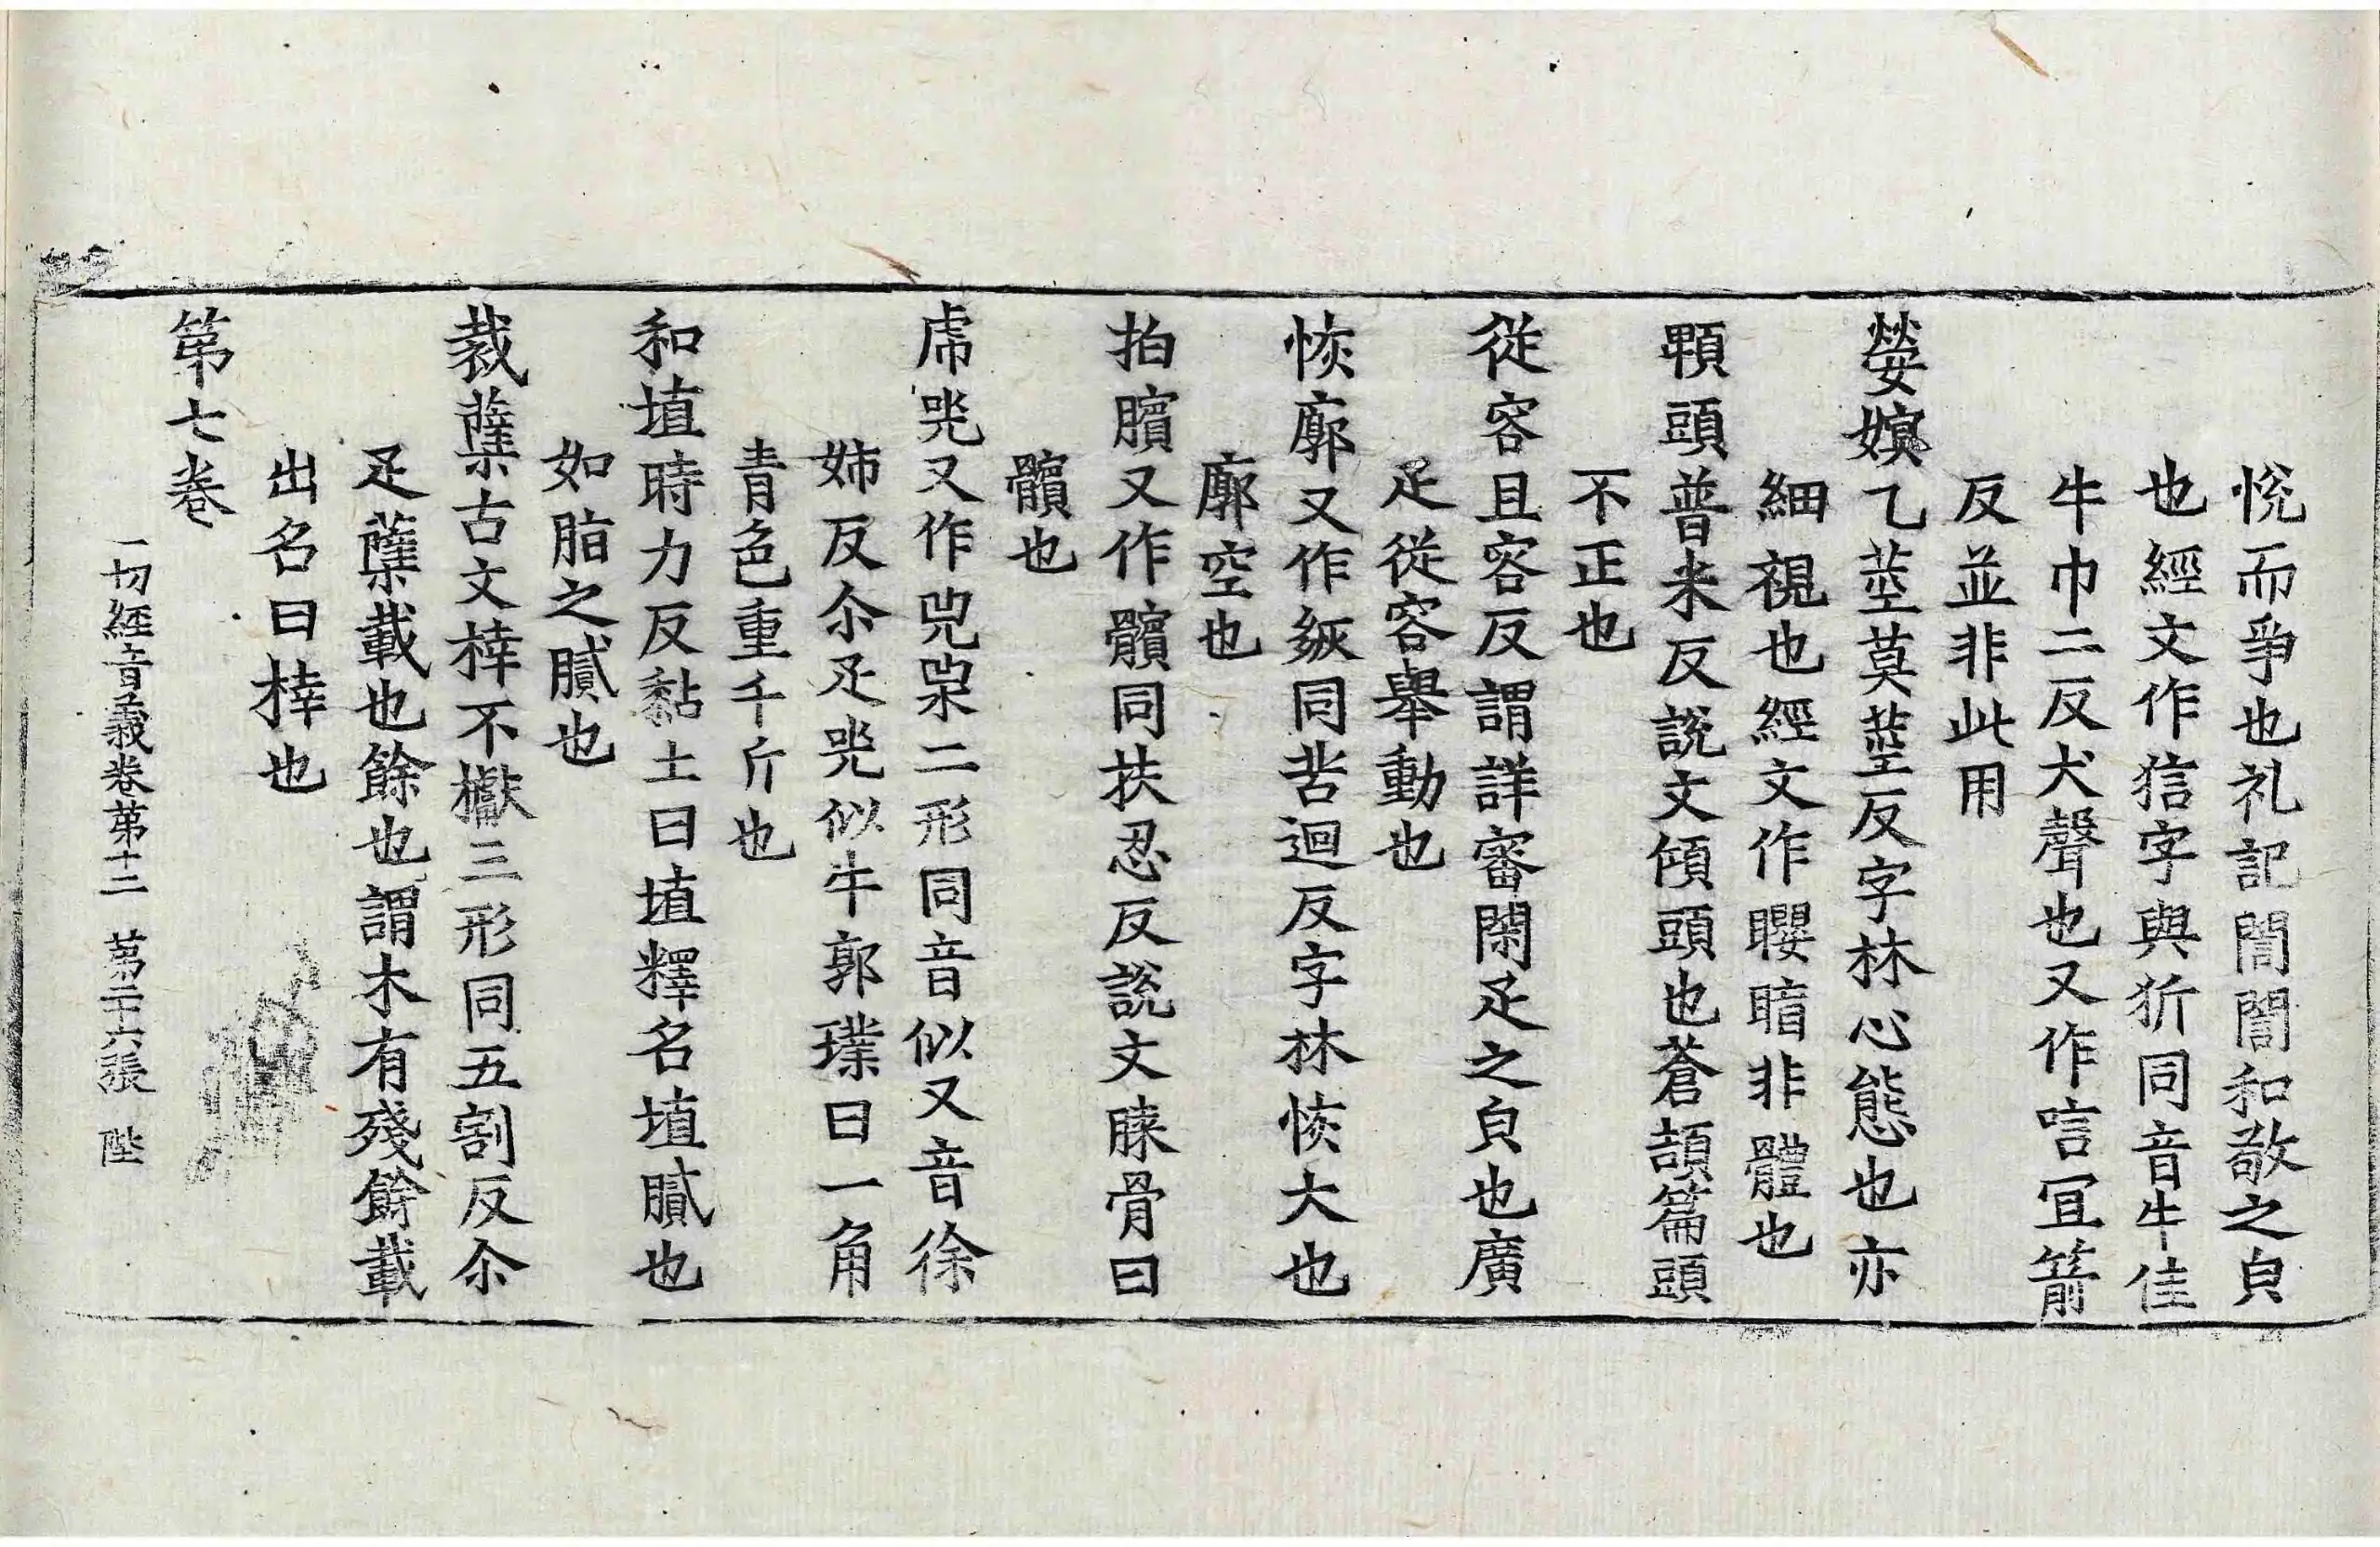 悅而爭也礼記誾誾和敬之皃
也經文作狺字與㹞同音牛佳
牛巾二反犬聲也又作唁宜箭
反並非此用
嫈嫇乙莖莫莖反字林心態也亦
細視也經文作䁝暗非體也
頼頭普米反說文傾頭也蒼頡篇頭
不正也
從容且容反謂詳審閑疋之皃也廣
疋從容舉動也
恢廓又作㷇同苦迴反字林恢大也
廓空也
拍臏又作髕同扶忍反說文䐚骨曰
髕也
虎兕又作兕𠒅二形同音似又音徐
姊反尒疋兕似牛郭璞曰一角
青色重千斤也
和埴時力反黏土曰埴釋名埴膱也
如脂之膱也
栽蘖古文㭕不櫱三形同五割反尒
疋蘖載也餘也謂木有殘餘載
出名曰㭕也
第七卷
一切經音義卷第十二 第二十六張 陛